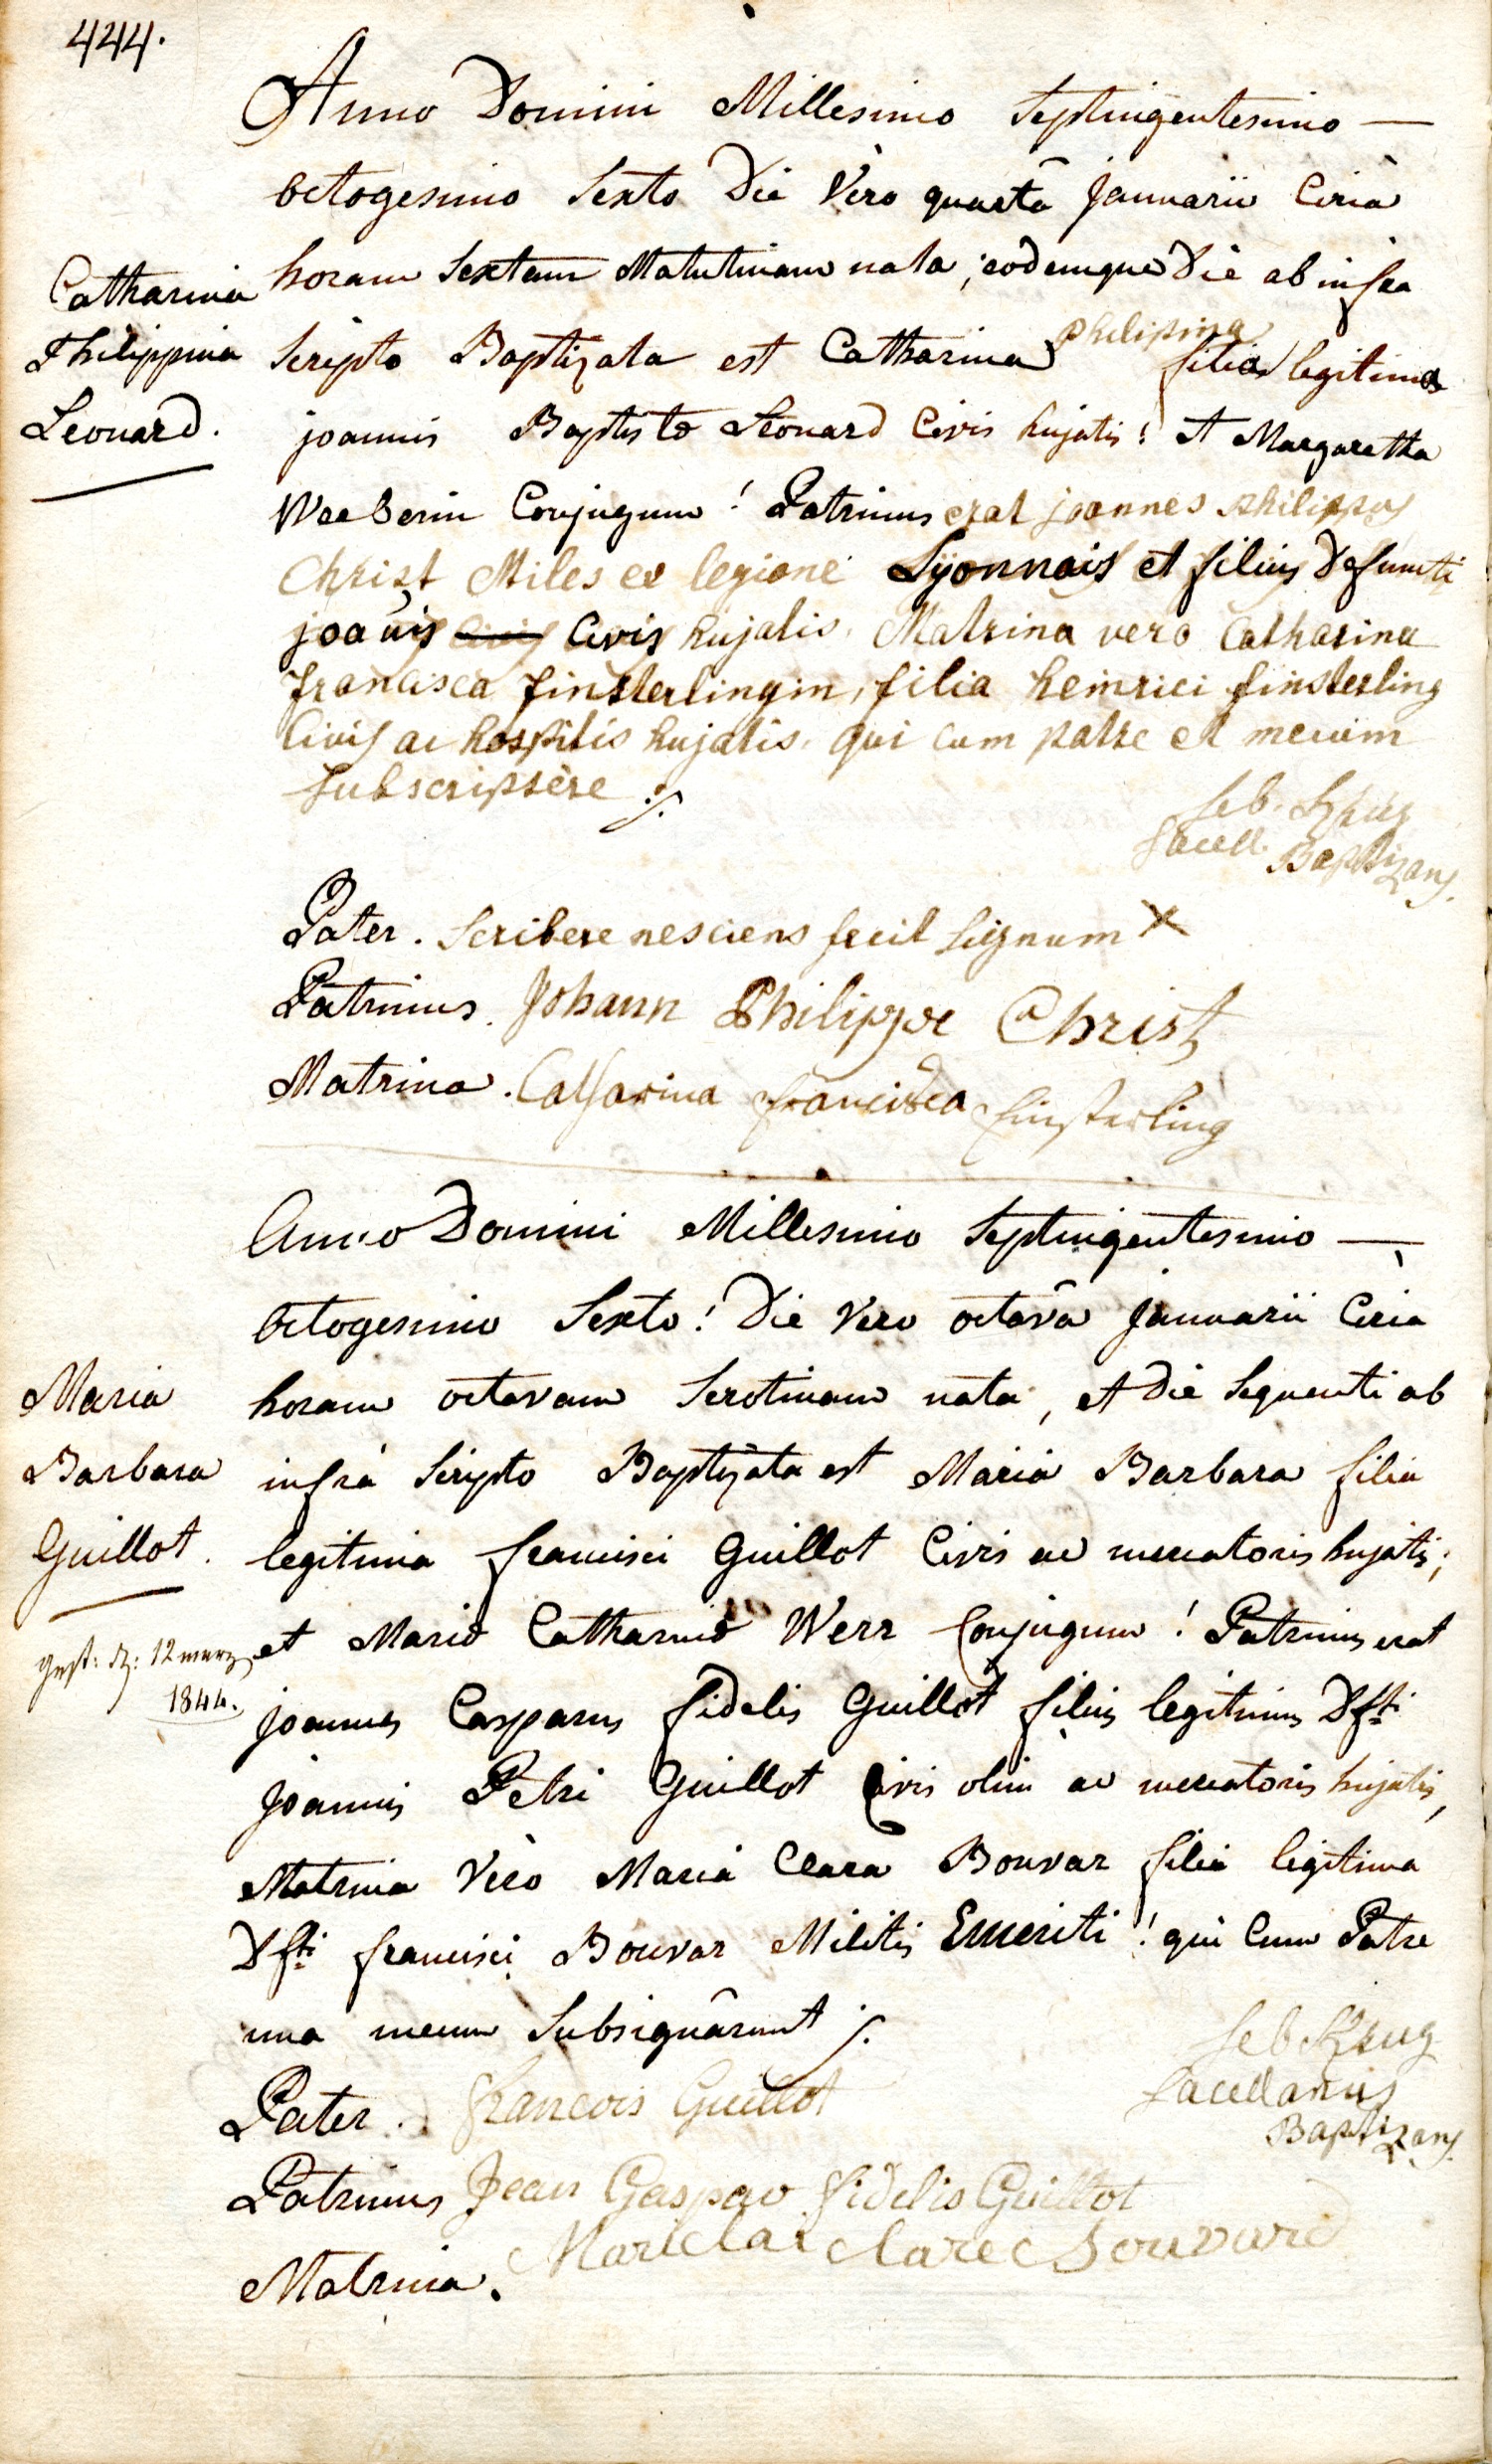 444.
Anno Domini Millesimo Septingentesimo —
octogesimo Sexto Die Vero quartâ Januarii Circà
Catharina
horam Sextam Matutinam nata, eodemque Die ab infra
Philippina
Scripto Baptizata est Catharina Philipina filia legitima
Leonard.
joannis Baptistæ Leonard Civis hujatis! et Margaretha
Weeberin Conjugum! Patrinus erat joannes Philippus
Christ Miles ex legione Lÿonnais et filius Defuncti
joañis Civis Civis hujatis. Matrina vero Catharina
francisca finsterlingin, filia henrici finsterling
Civis ac hospitis hujatis. qui cum patre et mecum
Subscripsère ./.
Seb. Krug
Sacell. Baptizans.
Pater. Scribere nesciens fecit Signum X
Patrinus. Johann Philippe Christ
Matrina. Catharina francisca finsterling
Anno Domini Millesimo Septingentesimo —
octogesimo Sexto! Die Vero octavâ Januarii Circa
Maria
horam octavam Serotinam nata, et Die Sequenti ab
Barbara
infrà Scripto Baptizata est Maria Barbara filia
Guillot.
legitima francisci Guillot Civis ac mercatoris hujatis;
et Mariæ Catharinæ Werr Conjugum! Patrinus erat
gest: d: 12 merz
1844.
joannes Casparus fidelis Guillot filius legitimus Dfti
Joannis Petri Guillot Civis olim ac mercatoris hujatis,
Matrina Vèro Maria Clara Bouvar filia legitima
Dfti francisci Bouvar Militis Emeriti! qui Cum Patre
una mecum Subsignârunt ./.
Seb Krug
Sacellanus
Baptizans.
Pater. francois Guillot
Patrinus Jean Gaspar fidelis Guillot
Matrina. Clare Bouvard